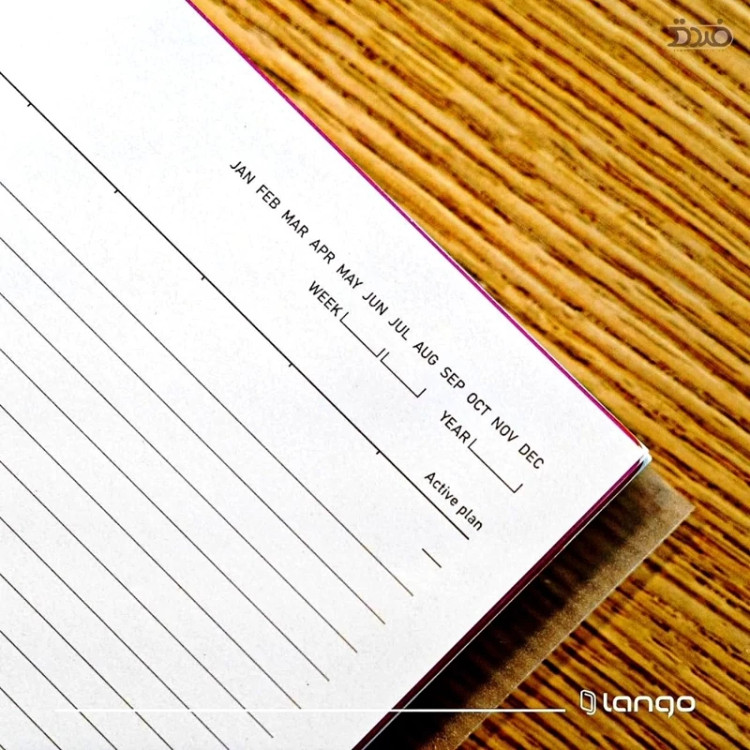 فندق
JAN FEB MAR APR MAY JUN JUL AUG SEP OCT NOV DEC
WEEK
YEAR
Active plan
lango